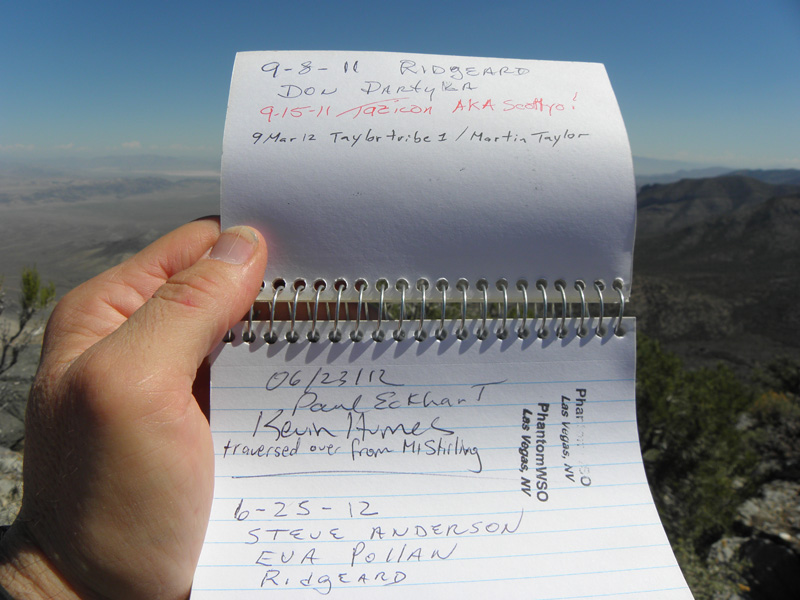 9-8-11 RIDGEARD
DON PARTYKA
9-15-11 Tazicon AKA Scottyo!
9 Mar 12 Taylortribe1 / Martin Taylor
06/23/12
Paul Eckhart
Kevin Humes
traversed over from Mt Stirling
PhantomWSO
Las Vegas, NV
Phan SO
Las Vegas, NV
6-25-12
STEVE ANDERSON
EVA POLLAN
RIdgEARD